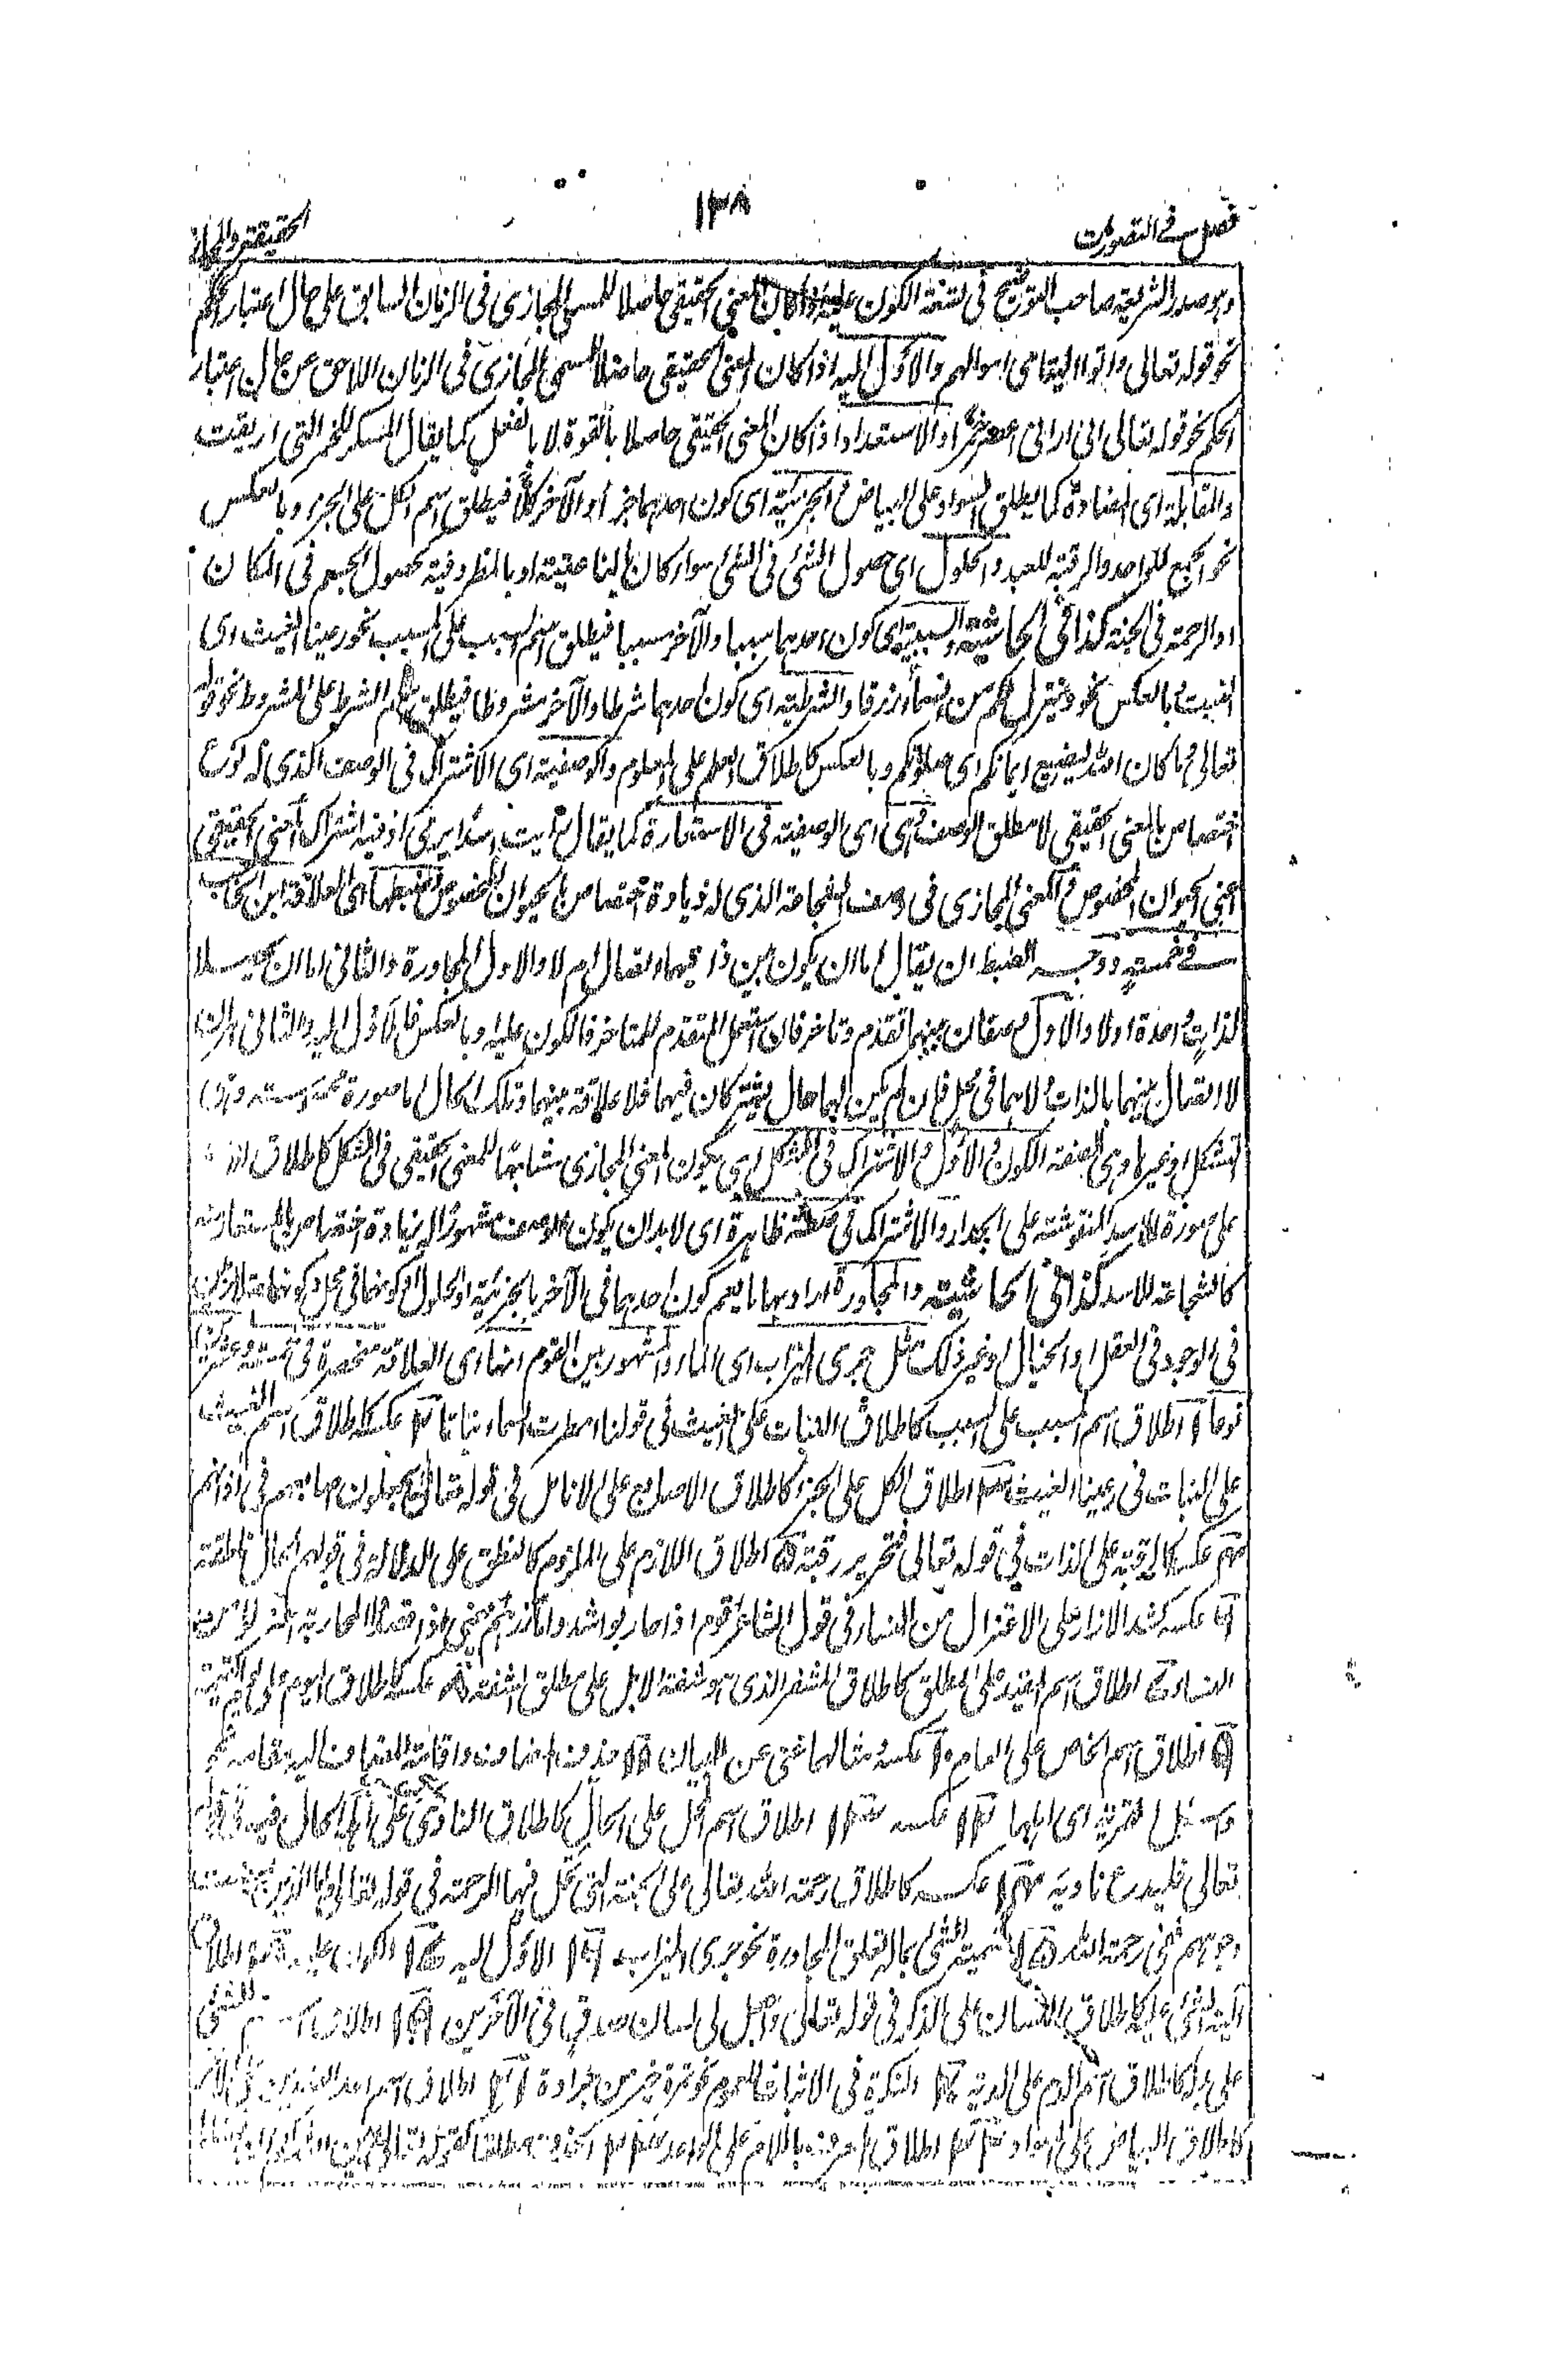 فصل في التصورات
١٣٨
الحقيقة والمجاز
وهو صدر الشريعة صاحب التوضيح في تسعة الكون عليه اذا كان المعنى الحقيقي حاصلا للمسمى المجازي في الزمان السابق على حال اعتبار الحكم
نحو قوله تعالى واتوا اليتامى اموالهم والاول اليه اذا كان المعنى الحقيقي حاصلا للمسمى المجازي في الزمان اللاحق عن حال اعتبار
الحكم نحو قوله تعالى اني اراني اعصر خمرا والاستعداد اذا كان المعنى الحقيقي حاصلا بالقوة لا بالفعل كما يقال المسكر للخمر التي اريقت
والمقابلة اى المضادة كما يطلق السواد على البياض والجزئية اى كون احدهما جزءا والآخر كلا فيطلق اسم الكل على الجزء وبالعكس
نحو الجمع للواحد والرقبة للعبد والحلول اى حصول الشئ في الشئ سواء كان بالناعتية او بالمظروفية كحصول الجسم في المكان
او الرحمة في الجنة كذا في الحاشية والسببية اى كون احدهما سببا والآخر مسببا فيطلق اسم السبب على المسبب نحو رعينا الغيث اى
النبت وبالعكس نحو وينزل لكم من السماء رزقا والشرطية اى كون احدهما شرطا والآخر مشروطا فيطلق اسم الشرط على المشروط نحو قوله
تعالى وما كان الله ليضيع ايمانكم اى صلوتكم وبالعكس كاطلاق العلم على المعلوم والوصفية اى الاشتراك في الوصف الذي له نوع
اختصاص بالمعنى الحقيقي لا مطلق الوصف وهي اى الوصفية في الاستعارة كما يقال رأيت اسدا يرمي اذ فيه اشتراك المعنى الحقيقي
اعني الحيوان المخصوص والمعنى المجازي في وصف الشجاعة الذي له زيادة اختصاص بالحيوان المخصوص وضبطها اى العلاقة ابن الحاجب
في خمسة ووجه الضبط ان يقال اما ان يكون بين ذاتيهما اتصال ام لا والاول المجاورة والثاني اما ان يحصلا
لذات واحدة اولا والاول صفتان بينهما تقدم وتاخر فان استعمل المتقدم للمتاخر فالكون عليه وبالعكس فالاول اليه والثاني
لا اتصال بينهما بالذات ولا هما في محل فان لم يكن لهما حال يشتركان فيهما فلا علاقة بينهما وتلك الحال اما صورة محسوسة وهي
الشكل او غيرها وهي الصفة الكون والاول والاشتراك في الشكل اى يكون المعنى المجازي مشابها للمعنى الحقيقي في الشكل كاطلاق
على صورة الاسد المنقوشة على الجدار والاشتراك في صفة ظاهرة اى لابد ان يكون الوصف مشهورا له زيادة اختصاص بالمستعار منه
كالشجاعة للاسد كذا في الحاشية والمجاورة اراد بها ما يعم كون احدهما في الآخر بالجزئية او الحلول او كونهما في محل او كونهما متلازمين
في الوجود في العقل او الخيال وغير ذلك مثل جرى الميزاب اى الماء والمشهور بين القوم انها اى العلاقة منحصرة في خمسة وعشرين
نوعا ١ اطلاق اسم السبب على المسبب كاطلاق النبات على الغيث في قولنا امطرت السماء نباتا ٢ عكسه كاطلاق اسم الغيث
على النبات في رعينا الغيث ٣ اطلاق الكل على الجزء كاطلاق الاصابع على الانامل في قوله تعالى يجعلون اصابعهم في آذانهم
٤ عكسه كالرقبة على الذات في قوله تعالى فتحرير رقبة ٥ اطلاق اللازم على الملزوم كالنطق على الدلالة في قولهم الحال ناطقة
٦ عكسه كشد الازار على الاعتزال من النساء في قول الشاعر قوم اذا حاربوا شدوا مآزرهم
النساء ٧ اطلاق اسم المقيد على المطلق كاطلاق المشفر الذي هو شفة الابل على مطلق الشفة ٨ عكسه كاطلاق اليوم على يوم القيمة
٩ اطلاق اسم الخاص على العام ١٠ عكسه ومثالهما غني عن البيان ١١ حذف المضاف واقامة المضاف اليه مقامه نحو
واسئل القرية اى اهلها ١٢ عكسه ١٣ اطلاق اسم المحل على الحال كاطلاق النادي على اهله الحال فيه في قوله
تعالى فليدع ناديه ١٤ عكسه كاطلاق رحمة الله تعالى على الجنة التي تحل فيها الرحمة في قوله تعالى واما الذين ابيضت
وجوههم ففي رحمة الله ١٥ تسمية الشئ بما له تعلق المجاورة نحو جرى الميزاب ١٦ الاول اليه ١٧ الكون عليه ١٨ اطلاق
آلة الشئ عليه كاطلاق اللسان على الذكر في قوله تعالى واجعل لي لسان صدق في الآخرين ١٩ اطلاق اسم الشئ
على بدله كاطلاق اسم الدم على الدية ٢٠ النكرة في الاثبات للعموم نحو تمرة خير من جرادة ٢١ اطلاق اسم احد الضدين على الآخر
كاطلاق البياض على السواد ٢٢ اطلاق المعرف باللام على الواحد ٢٣ الحذف مطلقا كقوله تعالى